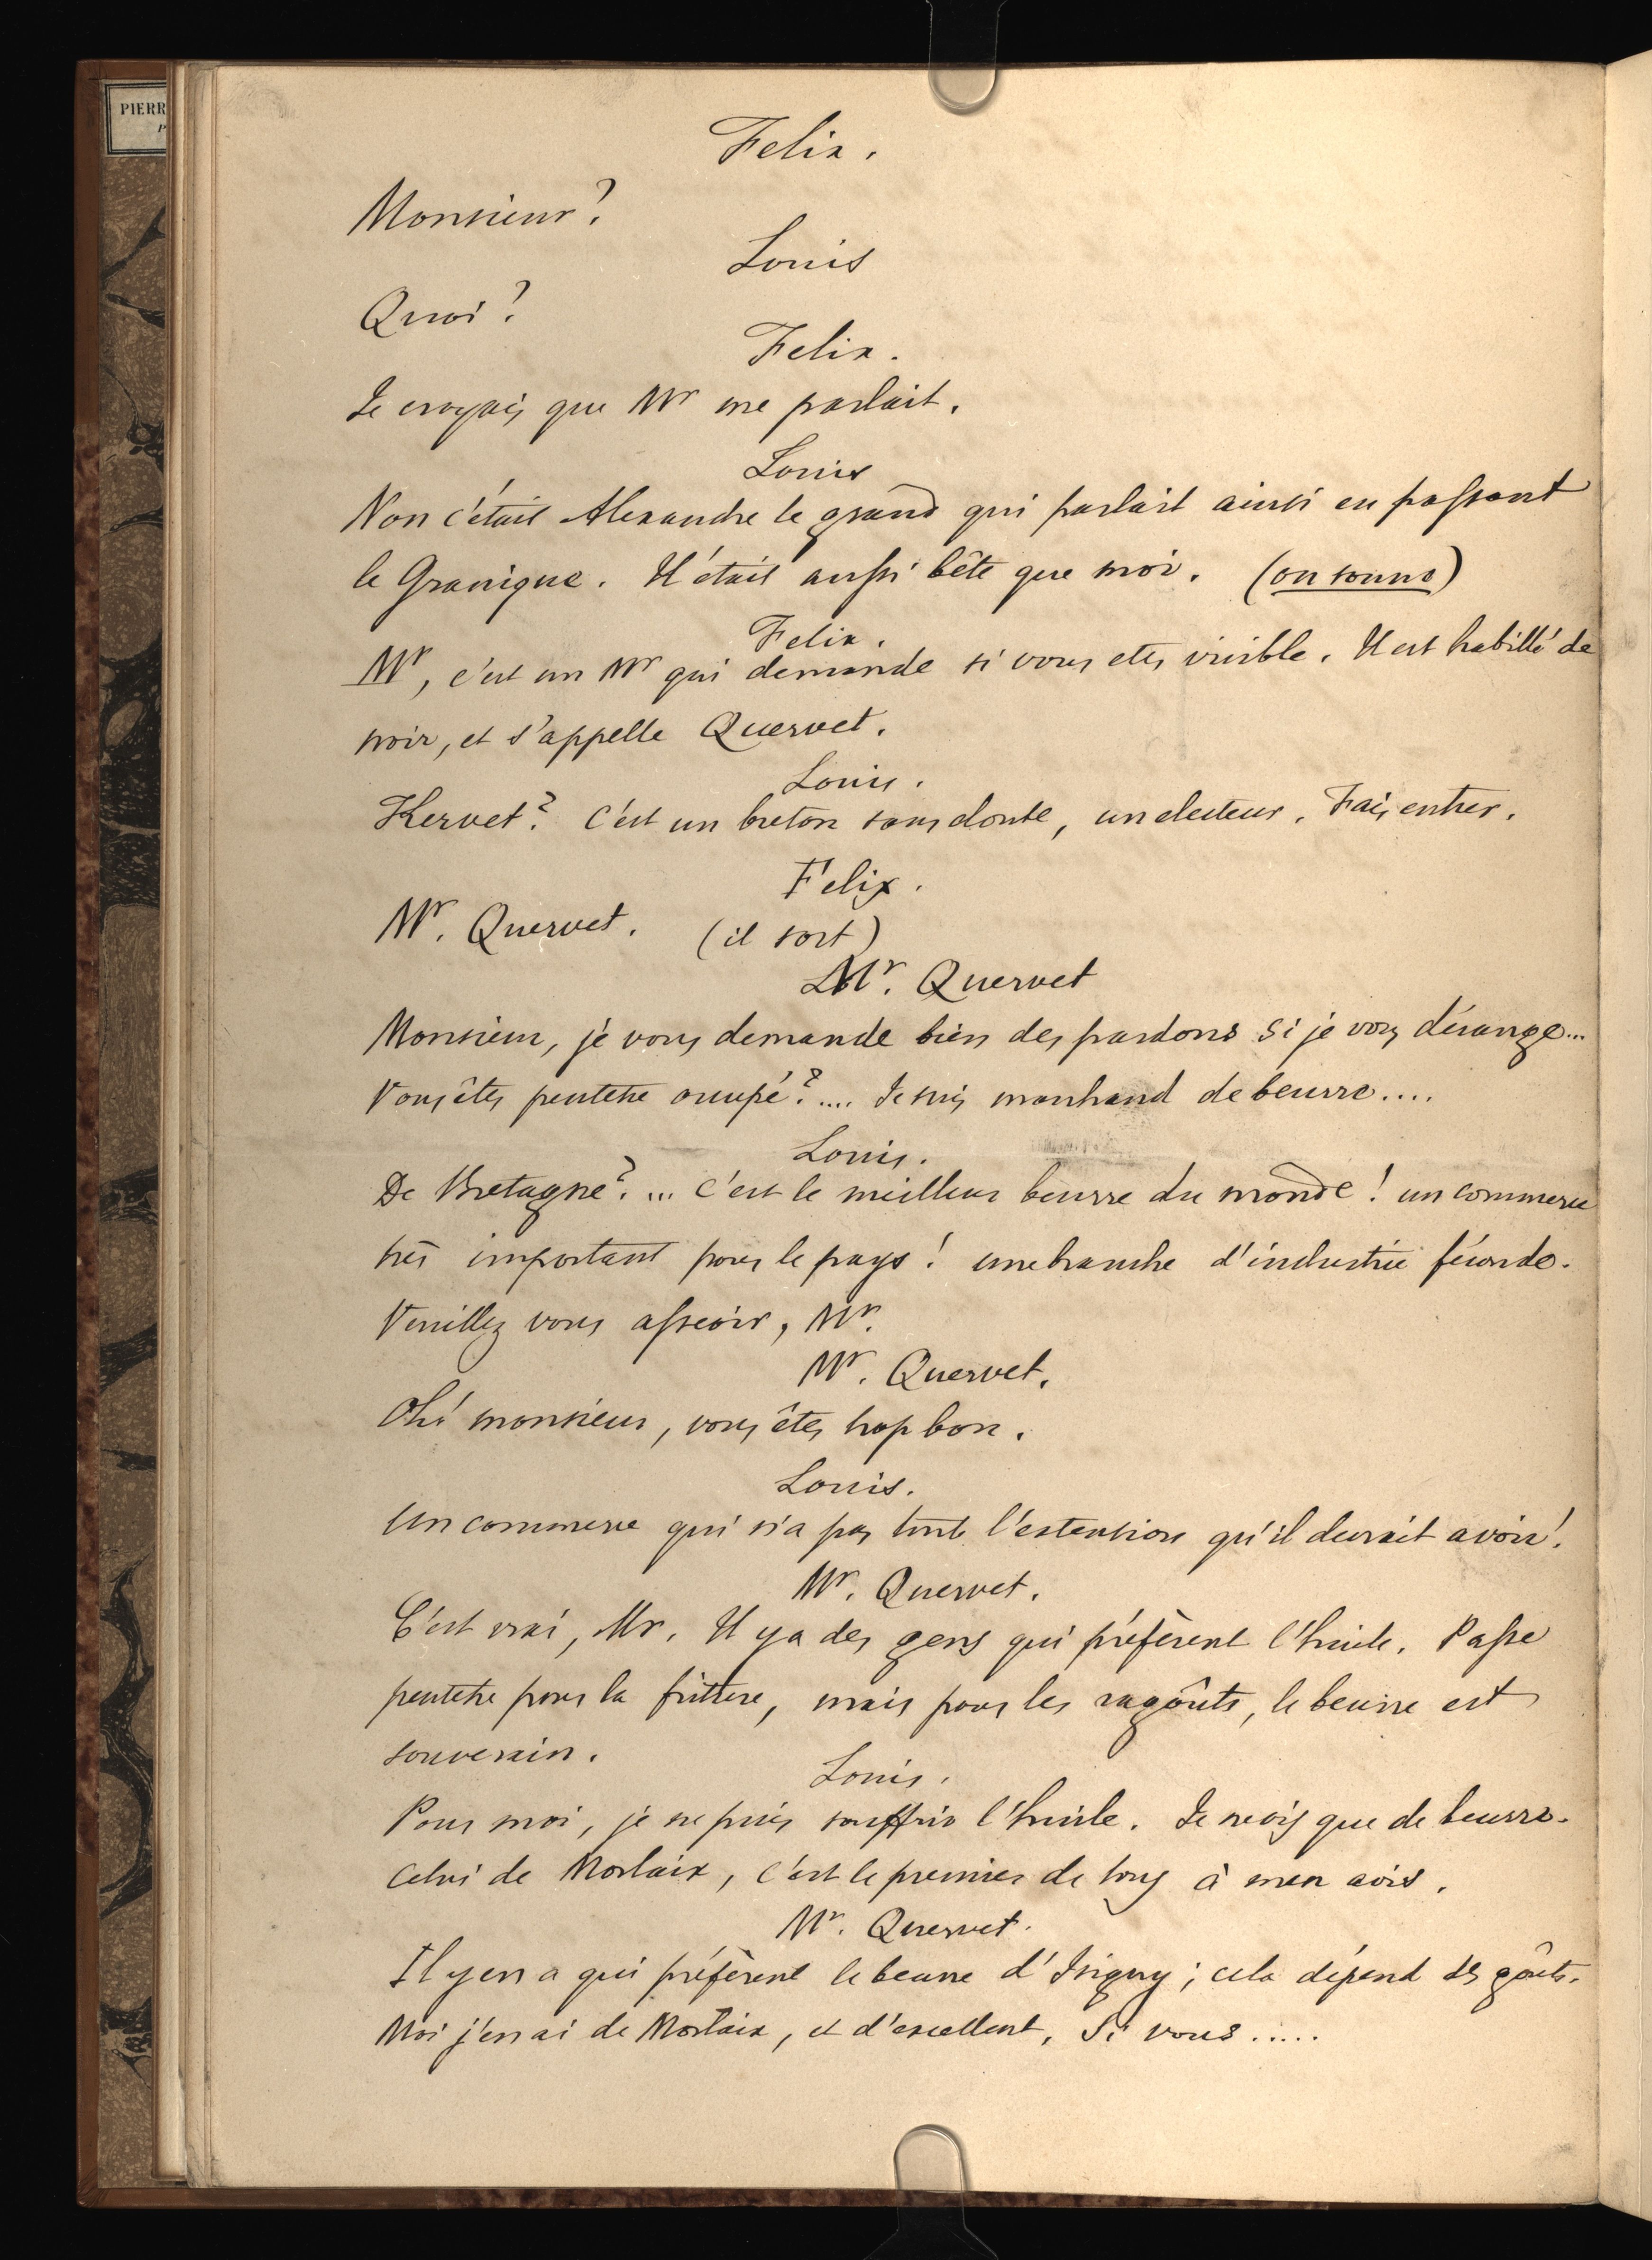 PIERR
P
Felix.
Monsieur?
Louis
Quoi?
Felix.
Je croyais que Mr me parlait.
Louis
Non c'était Alexandre le grand qui parlait ainsi en passant
le Granique. Il était aussi bête que moi. (on sonne)
Felix.
Mr, c'est un Mr qui demande si vous etes visible. Il est habillé de
noir, et s'appelle Quervet.
Louis.
Kervet? C'est un breton sans doute, un electeur. Fais entrer.
Felix.
Mr. Quervet. (il sort)
Mr. Quervet
Monsieur, je vous demande bien des pardons si je vous dérange...
Vous êtes peutetre occupé?.... Je suis marchand de beurre....
Louis.
De Bretagne?... C'est le meilleur beurre du monde! un commerce
très important pour le pays! une branche d'industrie féconde.
Veuillez vous asseoir, Mr.
Mr. Quervet.
Oh! monsieur, vous êtes trop bon.
Louis.
Un commerce qui n'a pas toute l'extension qu'il devrait avoir!
Mr. Quervet.
C'est vrai, Mr. Il y a des gens qui préfèrent l'huile. Passe
peutetre pour la friture, mais pour les ragoûts, le beurre est
souverain.
Louis.
Pour moi, je ne puis souffrir l'huile. Je ne vis que de beurre.
Celui de Morlaix, c'est le premier de tous à mon avis.
Mr. Quervet.
Il y en a qui préfèrent le beurre d'Isigny; cela dépend des goûts.
Moi j'en ai de Morlaix, et d'excellent. Si vous.....